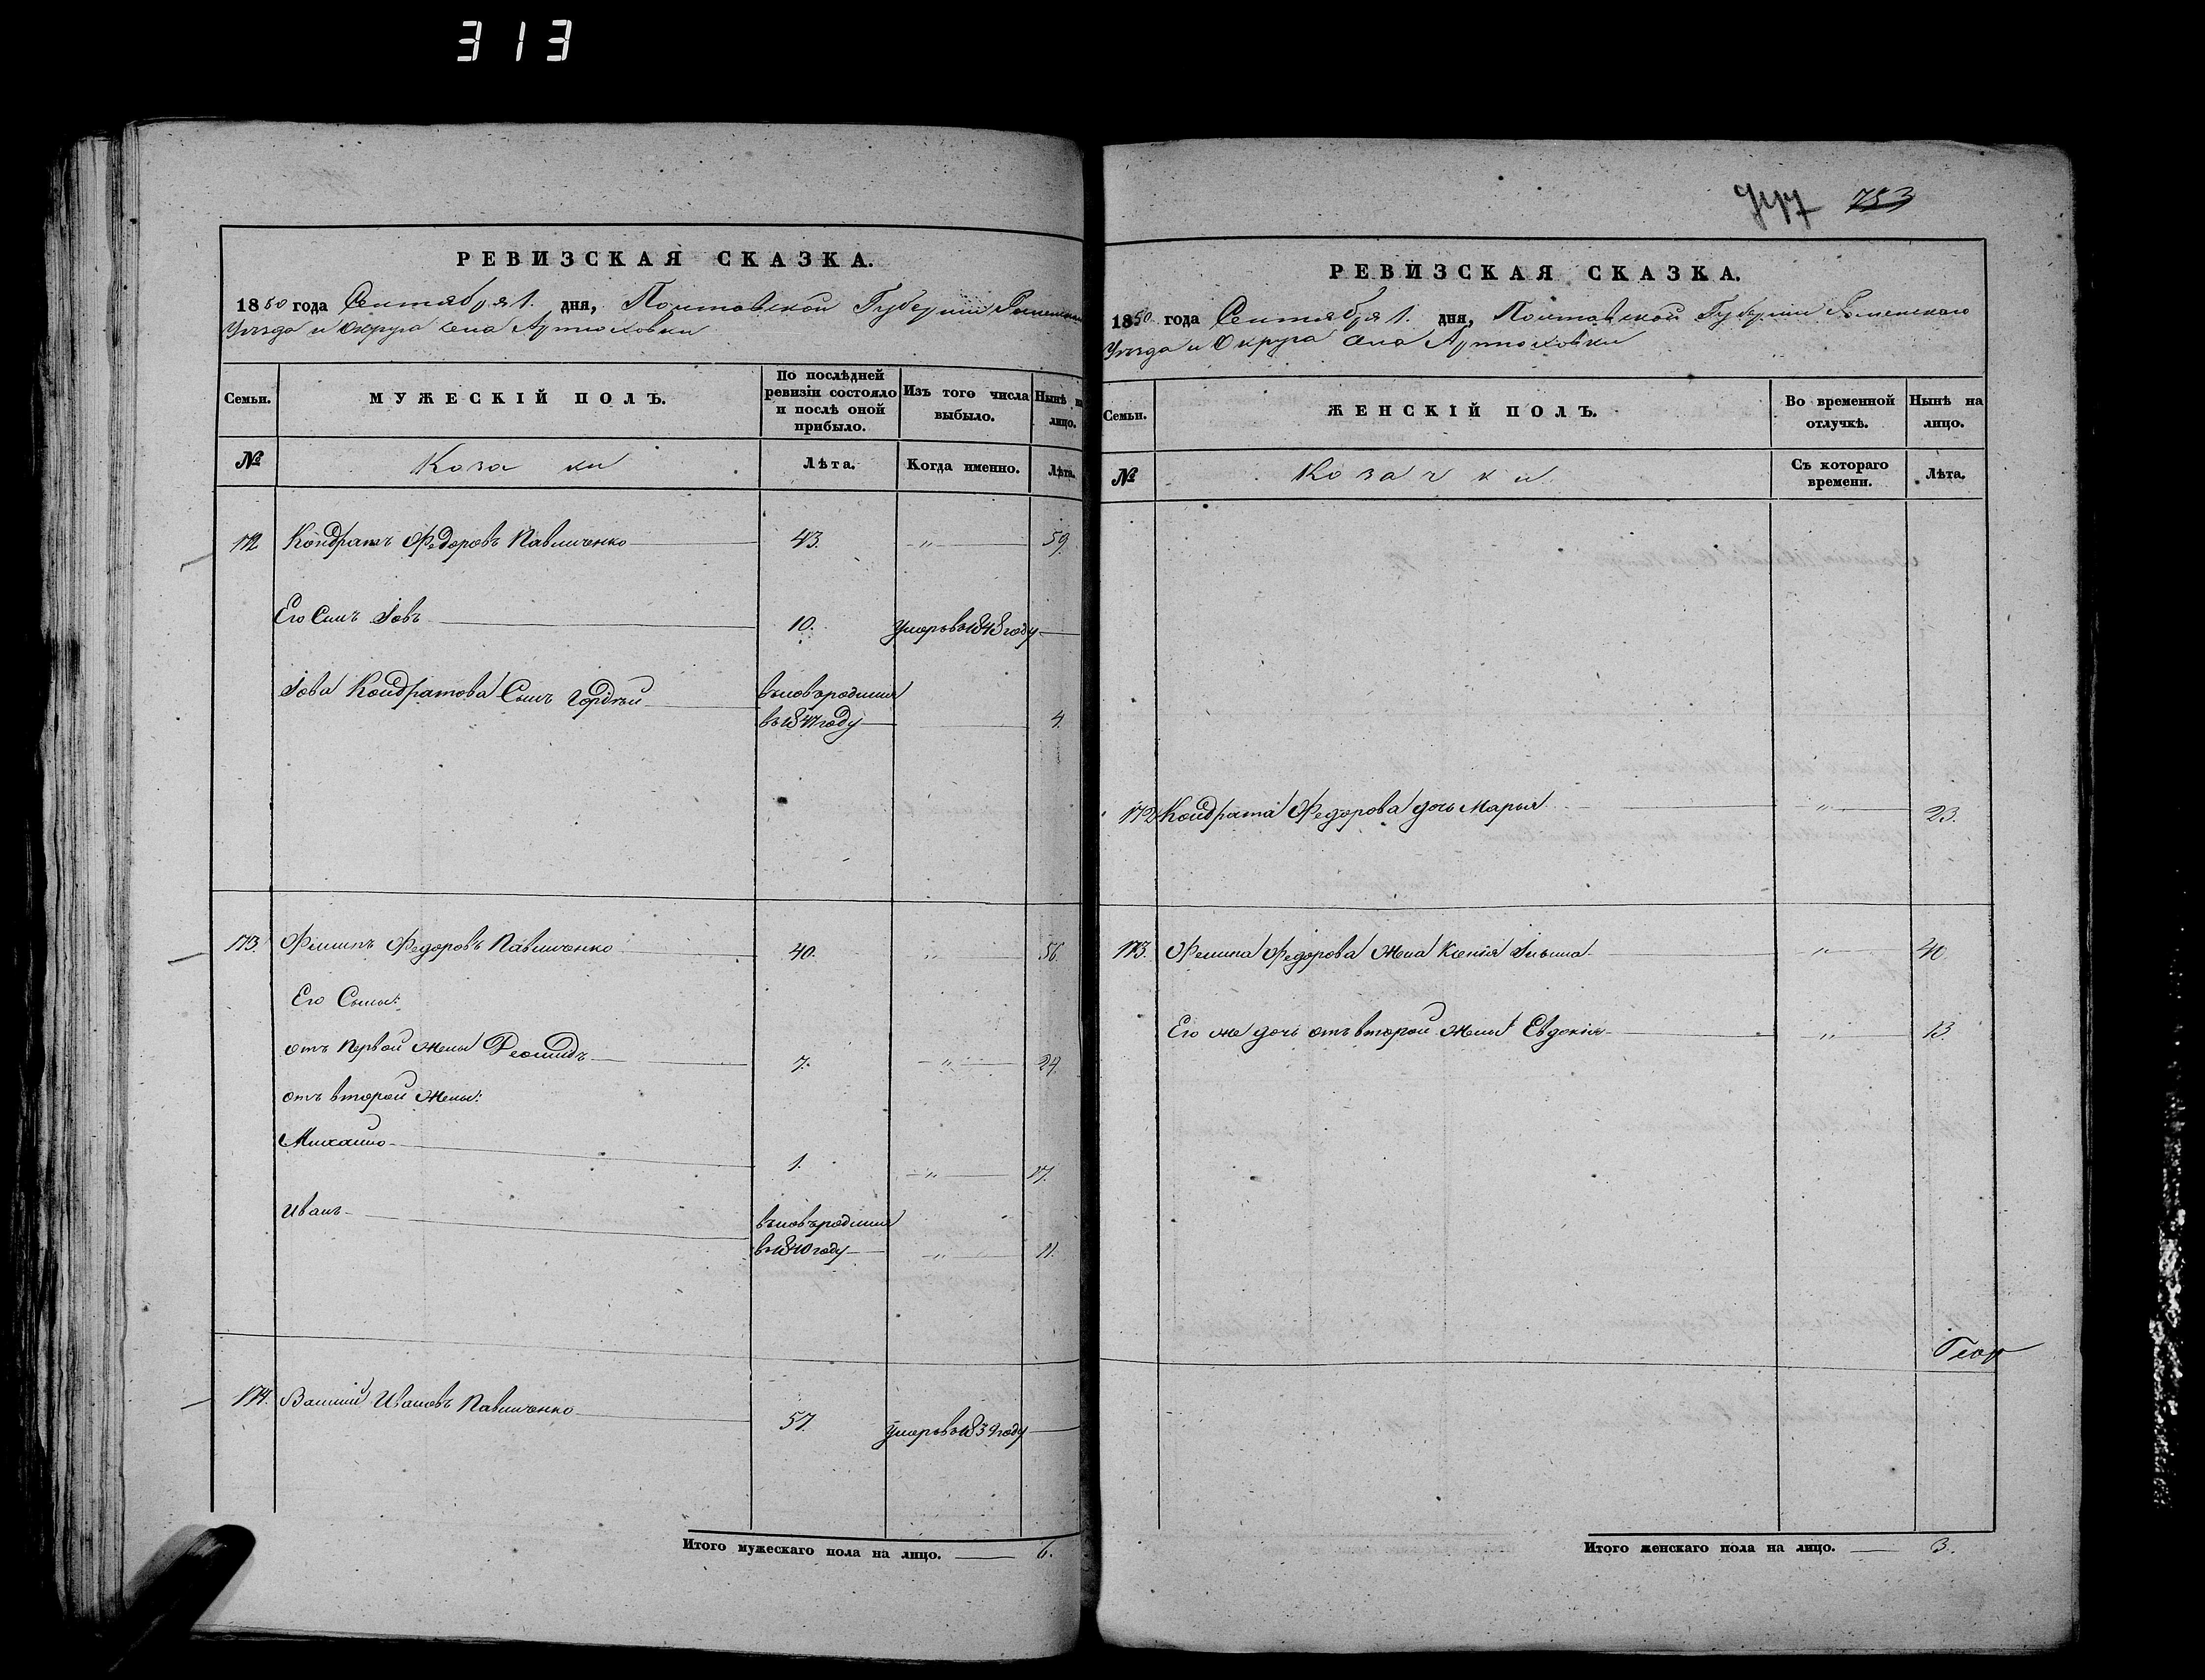 313
РЕВИЗСКАЯ СКАЗКА.
1850 года Сентября 1. дня, Полтавской Губерніи Роменскаго
Уѣзда и Округа села Артюховки
Семьи.
МУЖЕСКІЙ ПОЛЪ.
По послѣдней ревизіи состояло и послѣ оной прибыло.
Изъ того числа выбыло.
Нынѣ на лицо.
№
Козаки
Лѣта.
Когда именно.
Лѣта.
172 Кондратъ Федоровъ Павличенко 43. 59.
Его Сынъ Іовъ 10. умеръ въ 1848 году
Іова Кондратова Сынъ Гордѣй вновь родился
въ 1847 году 4.
173. Филипъ Федоровъ Павличенко 40. 56.
Его Сыны:
отъ первой жены Леонидъ 7. 24.
отъ второй жены:
Михайло 1. 17.
Иванъ вновь родился
въ 1840 году 11.
174. Василий Ивановъ Павличенко 57. умеръ въ 1839 году
Итого мужескаго пола на лицо. 6.
753
РЕВИЗСКАЯ СКАЗКА.
1850 года Сентября 1. дня, Полтавской Губерніи Роменскаго
Уѣзда и Округа села Артюховки
Семьи.
ЖЕНСКІЙ ПОЛЪ.
Во временной отлучкѣ.
Нынѣ на лицо.
№
Козачки
Съ котораго времени.
Лѣта.
172 Кондрата Федорова дочь Марья " 23.
173. Филипа Федорова жена Ксенія Ильина " 40.
Его же дочь отъ второй жены Евдокія " 13.
Итого женскаго пола на лицо. 3.